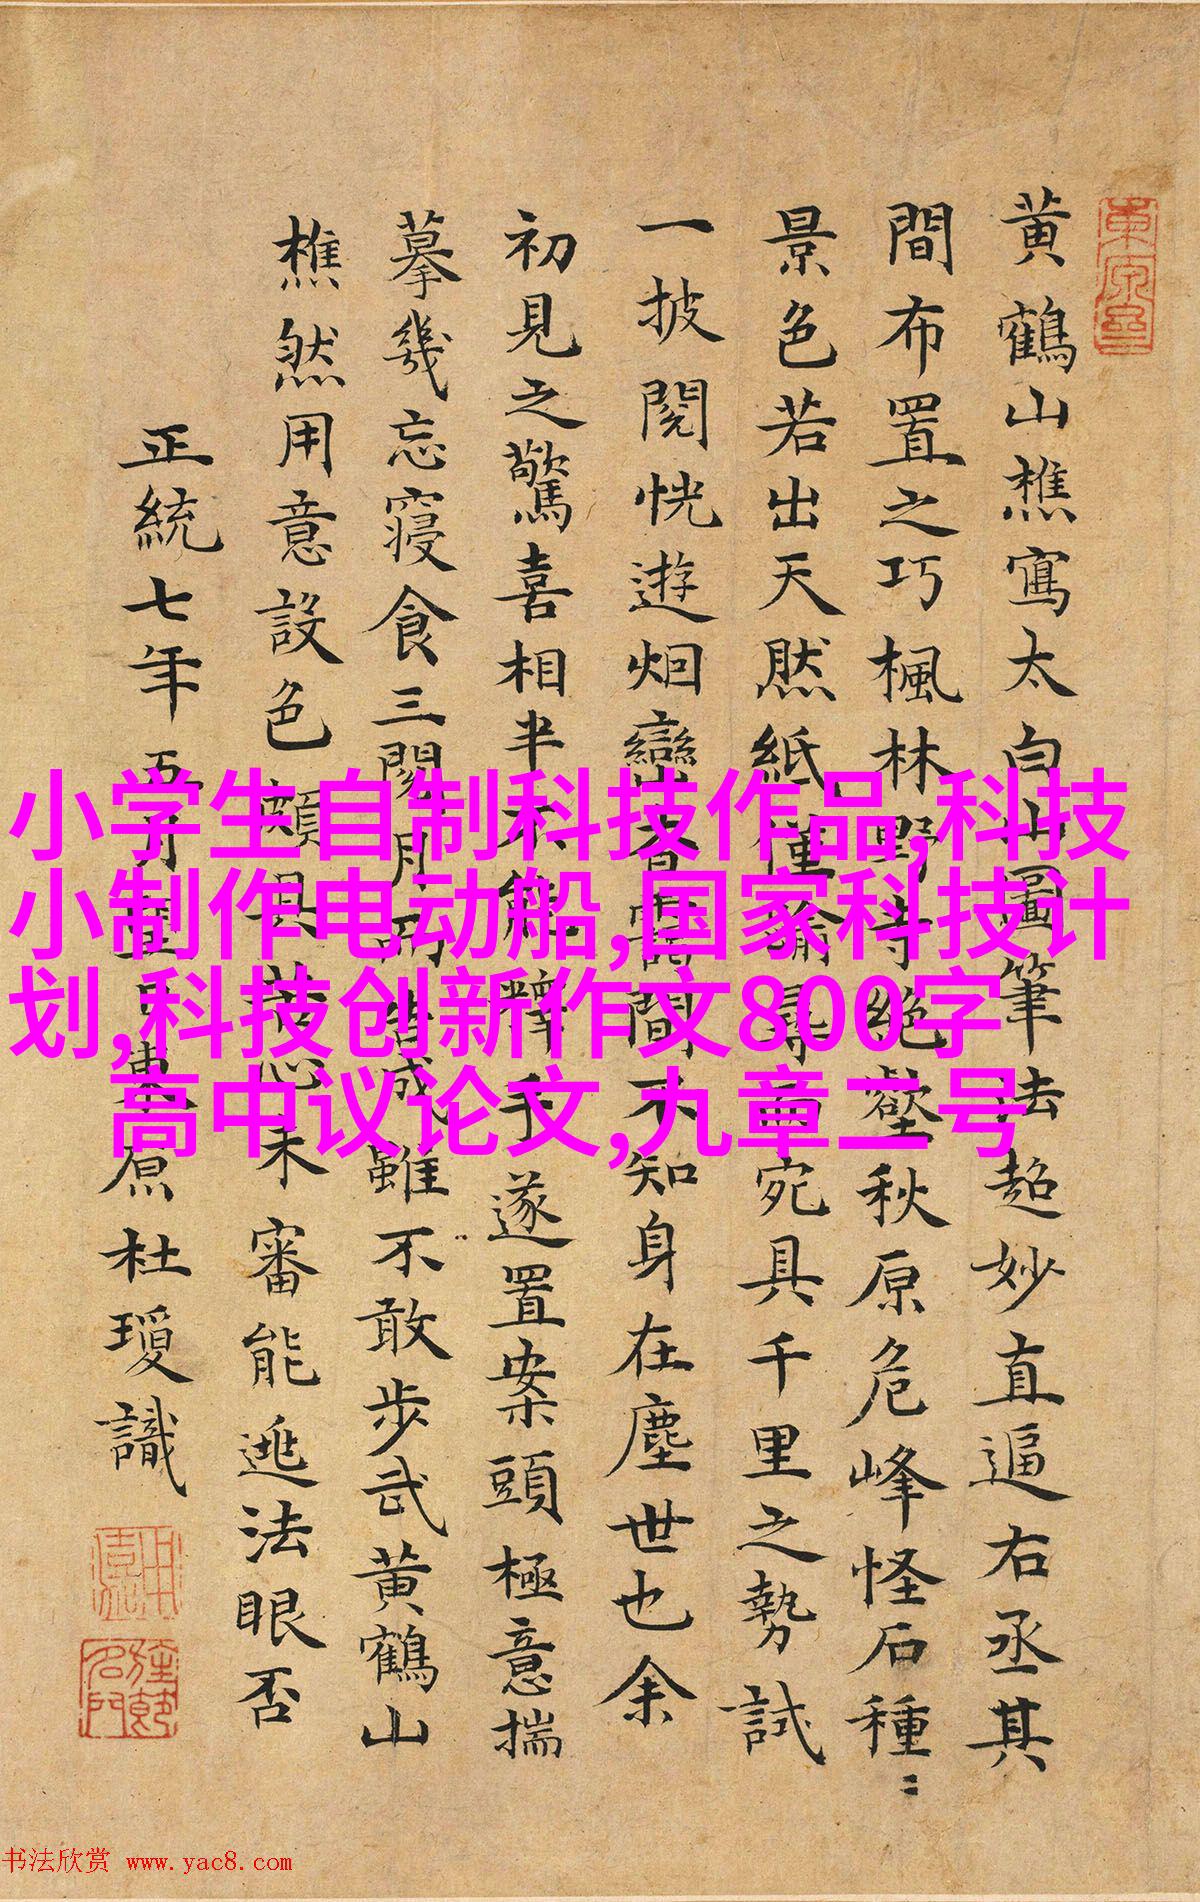 黄鶴山樵寫太白山圖筆法超妙直逼右丞其
間布置之巧楓林野寺絕壑秋原危峰怪石種〻
景色若出天然紙僅踰尋而宛具千里之勢試
一披閱恍遊烟巒杳靄間不知身在塵世也余
初見之驚喜相半不能釋手遂置案頭極意揣
摹幾忘寢食三閱月而成雖不敢步武黄鶴山
樵然用意設色頗具苦心未審能逃法眼否
正統七年五月望日東原杜瓊識
小学生自制科技作品,科技
小制作电动船,国家科技计
划,科技创新作文800字
高中议论文,九章二号
书法欣赏 www.yac8.com